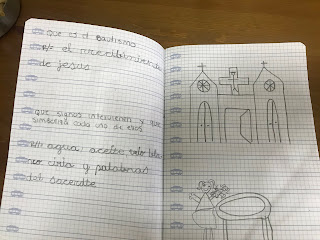 que es el Bautismo
R/= el nacimiento
de jesus
que signos intervienen y que
simboliza cada uno de esos
R/= agua, aceite, velo
cirio y palabras
del sacerdote